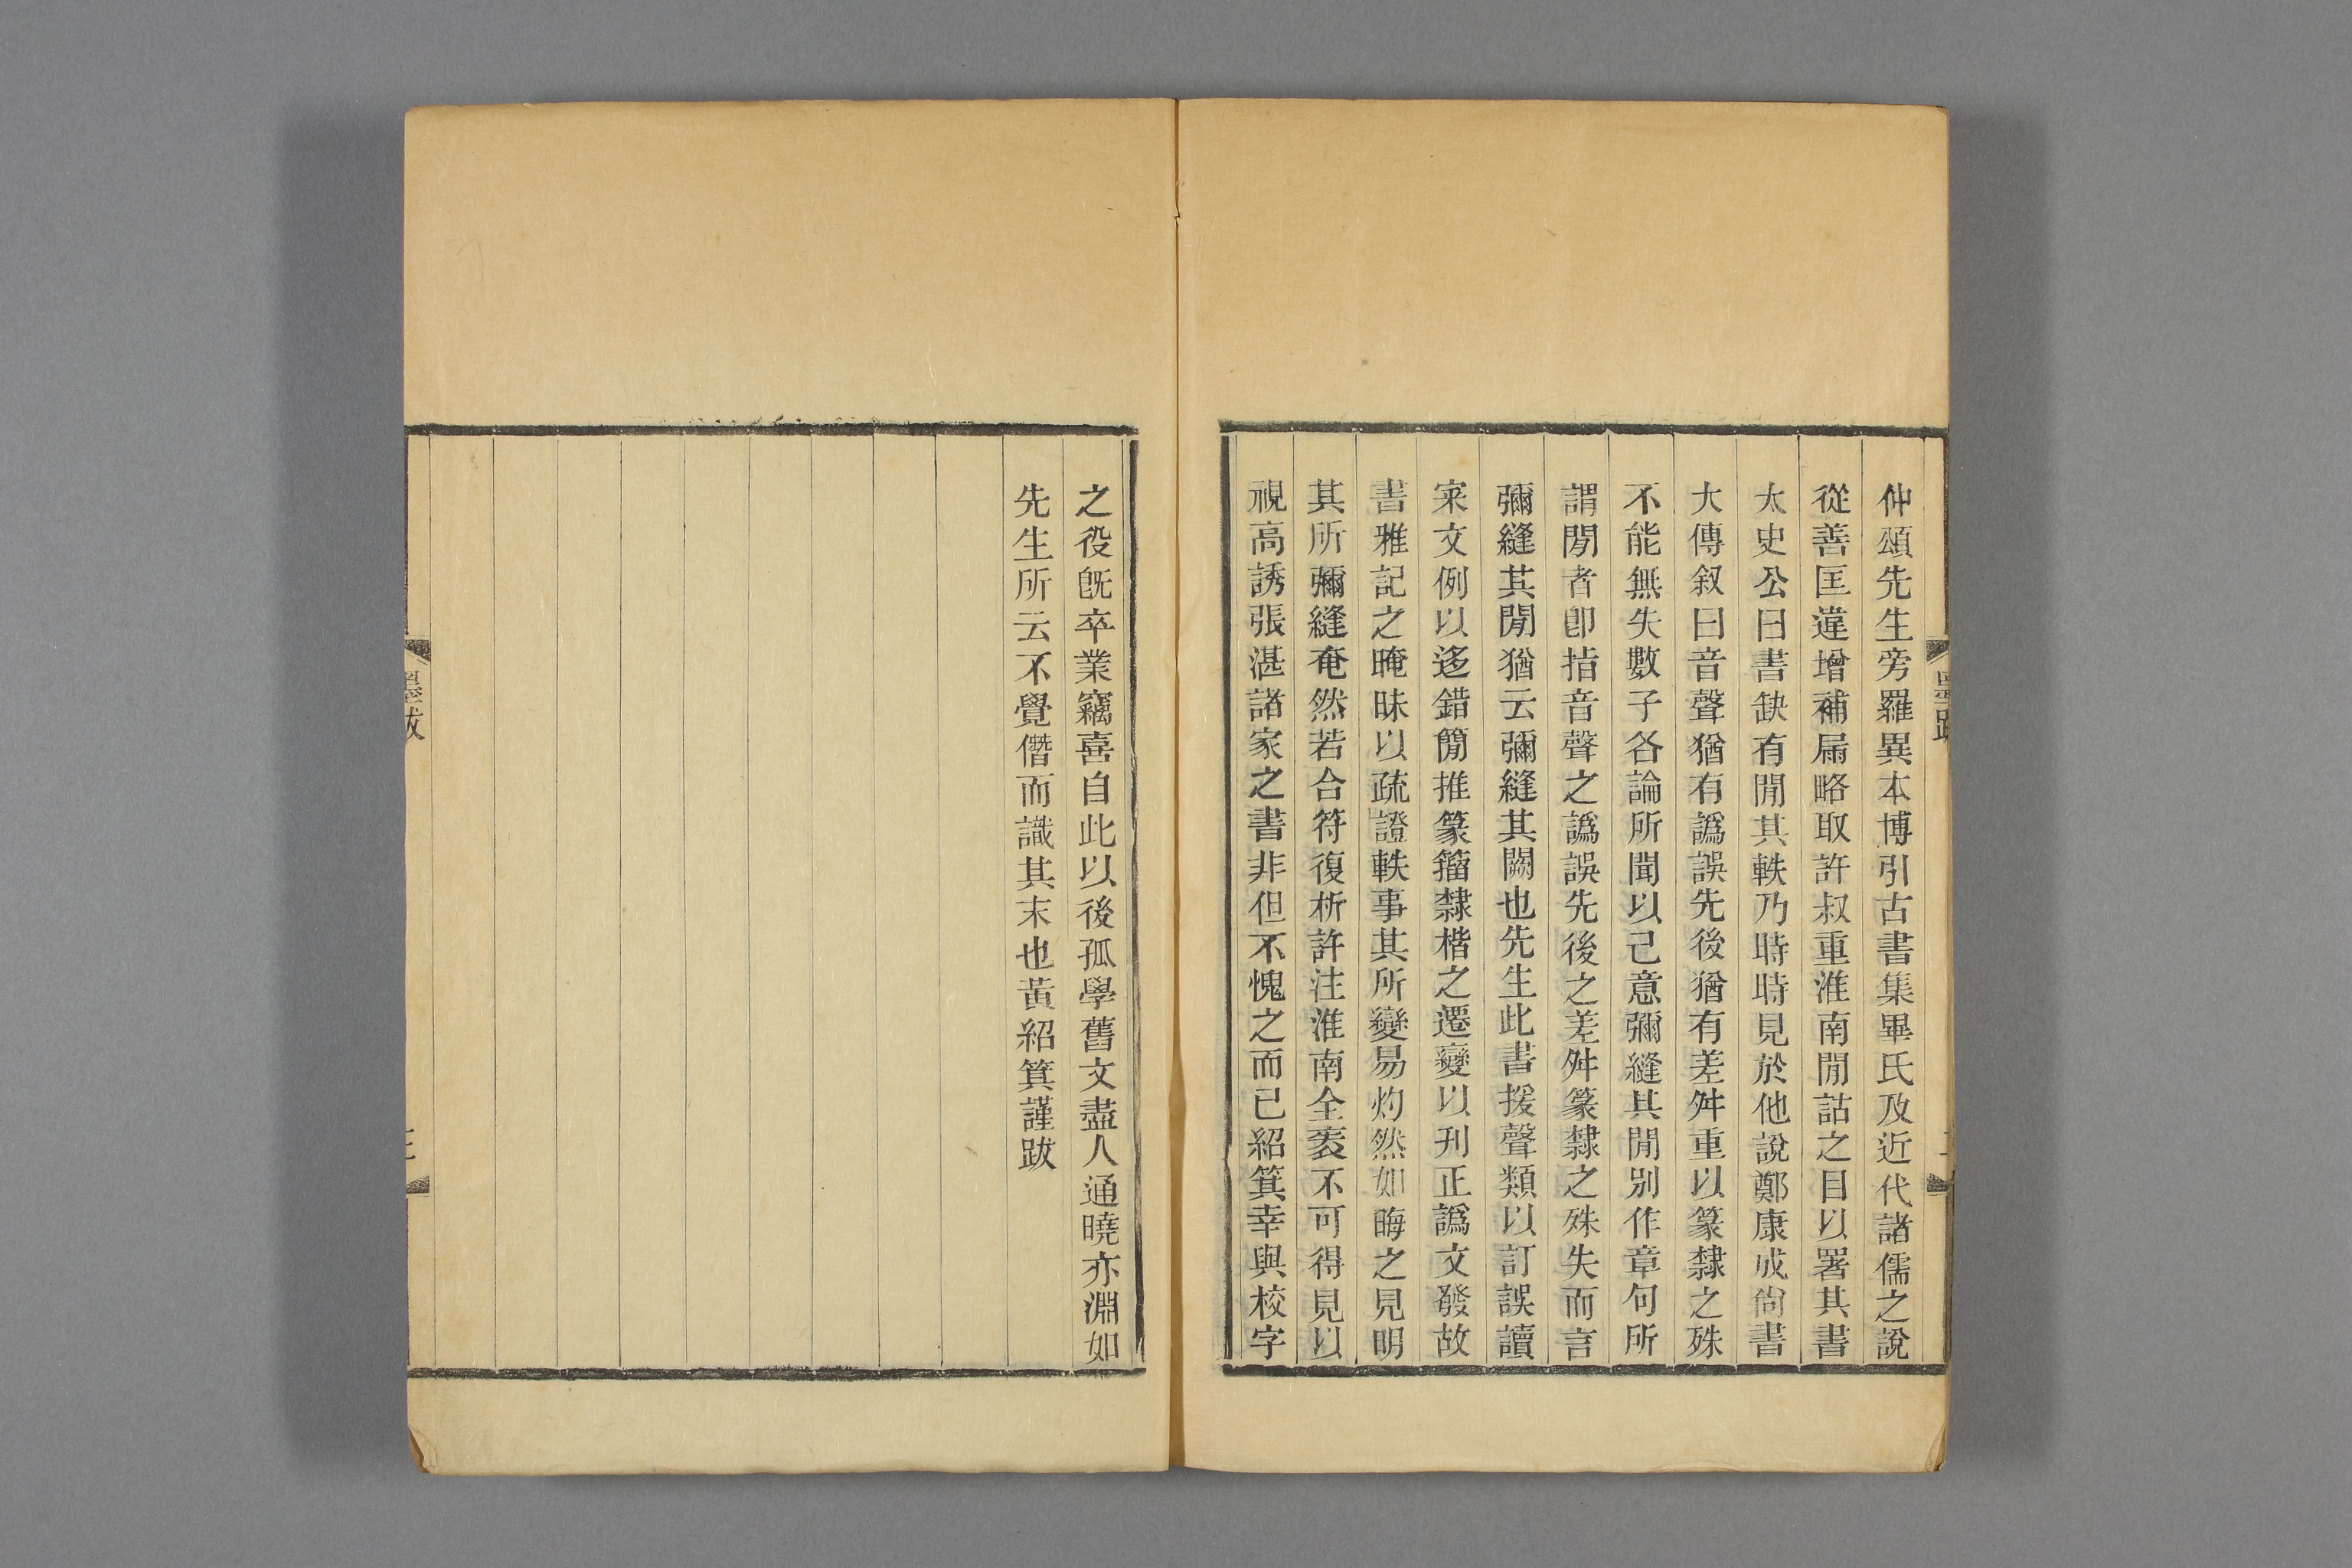 仲頌先生旁羅異本博引古書集畢氏及近代諸儒之說
從善匡違增補扇略取許叔重淮南閒詁之目以署其書
太史公曰書缺有閒其軼乃時時見於他說鄭康成尙書
大傳叙曰音聲猶有譌誤先後猶有差舛重以篆隸之殊
不能無失數子各論所聞以己意彌縫其閒別作章句所
謂閒者卽指音聲之譌誤先後之差舛篆隸之殊失而言
彌縫其閒猶云彌縫其闕也先生此書援聲類以訂誤讀
寀文例以迻錯簡推篆籀隸楷之遷變以刊正譌文發故
書雅記之晻昧以疏證軼事其所變易灼然如晦之見明
其所彌縫奄然若合符復析許注淮南全袠不可得見以
視高誘張湛諸家之書非但不愧之而已紹箕幸與校字
之役旣卒業竊喜自此以後孤學舊文盡人通曉亦淵如
先生所云不覺僭而識其末也黃紹箕謹跋
墨跋